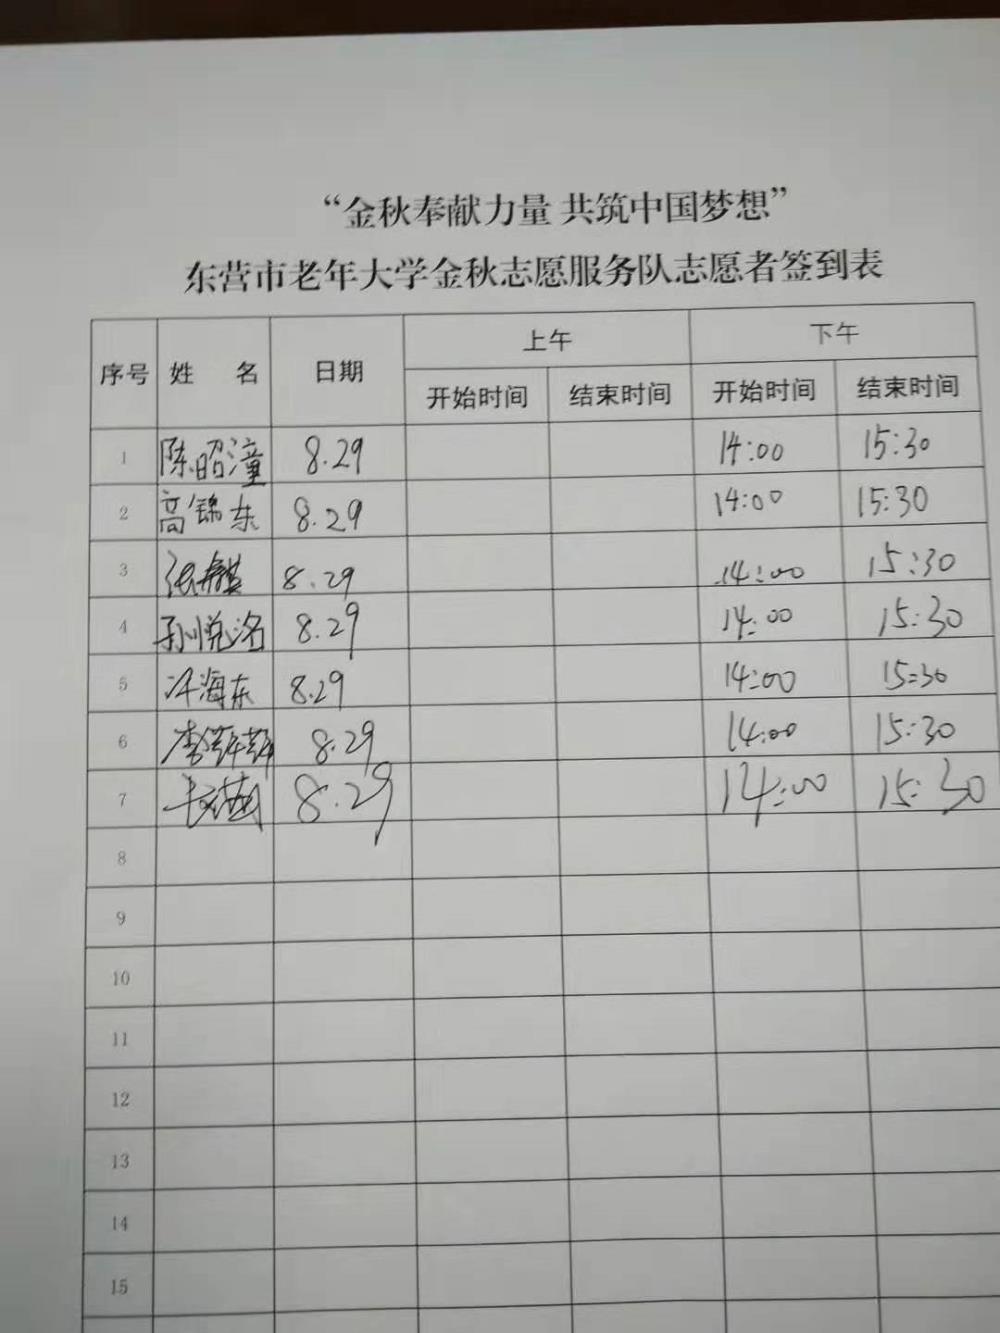 “金秋奉献力量 共筑中国梦想”
东营市老年大学金秋志愿服务队志愿者签到表
序号 姓 名 日期 上午 下午
开始时间 结束时间 开始时间 结束时间
1 陈昭潼 8.29 14:00 15:30
2 高锦东 8.29 14:00 15:30
3 8.29 14:00 15:30
4 孙悦洺 8.29 14:00 15:30
5 海东 8.29 14:00 15:30
6 李 8.29 14:00 15:30
7 8.29 14:00 15:30
8
9
10
11
12
13
14
15